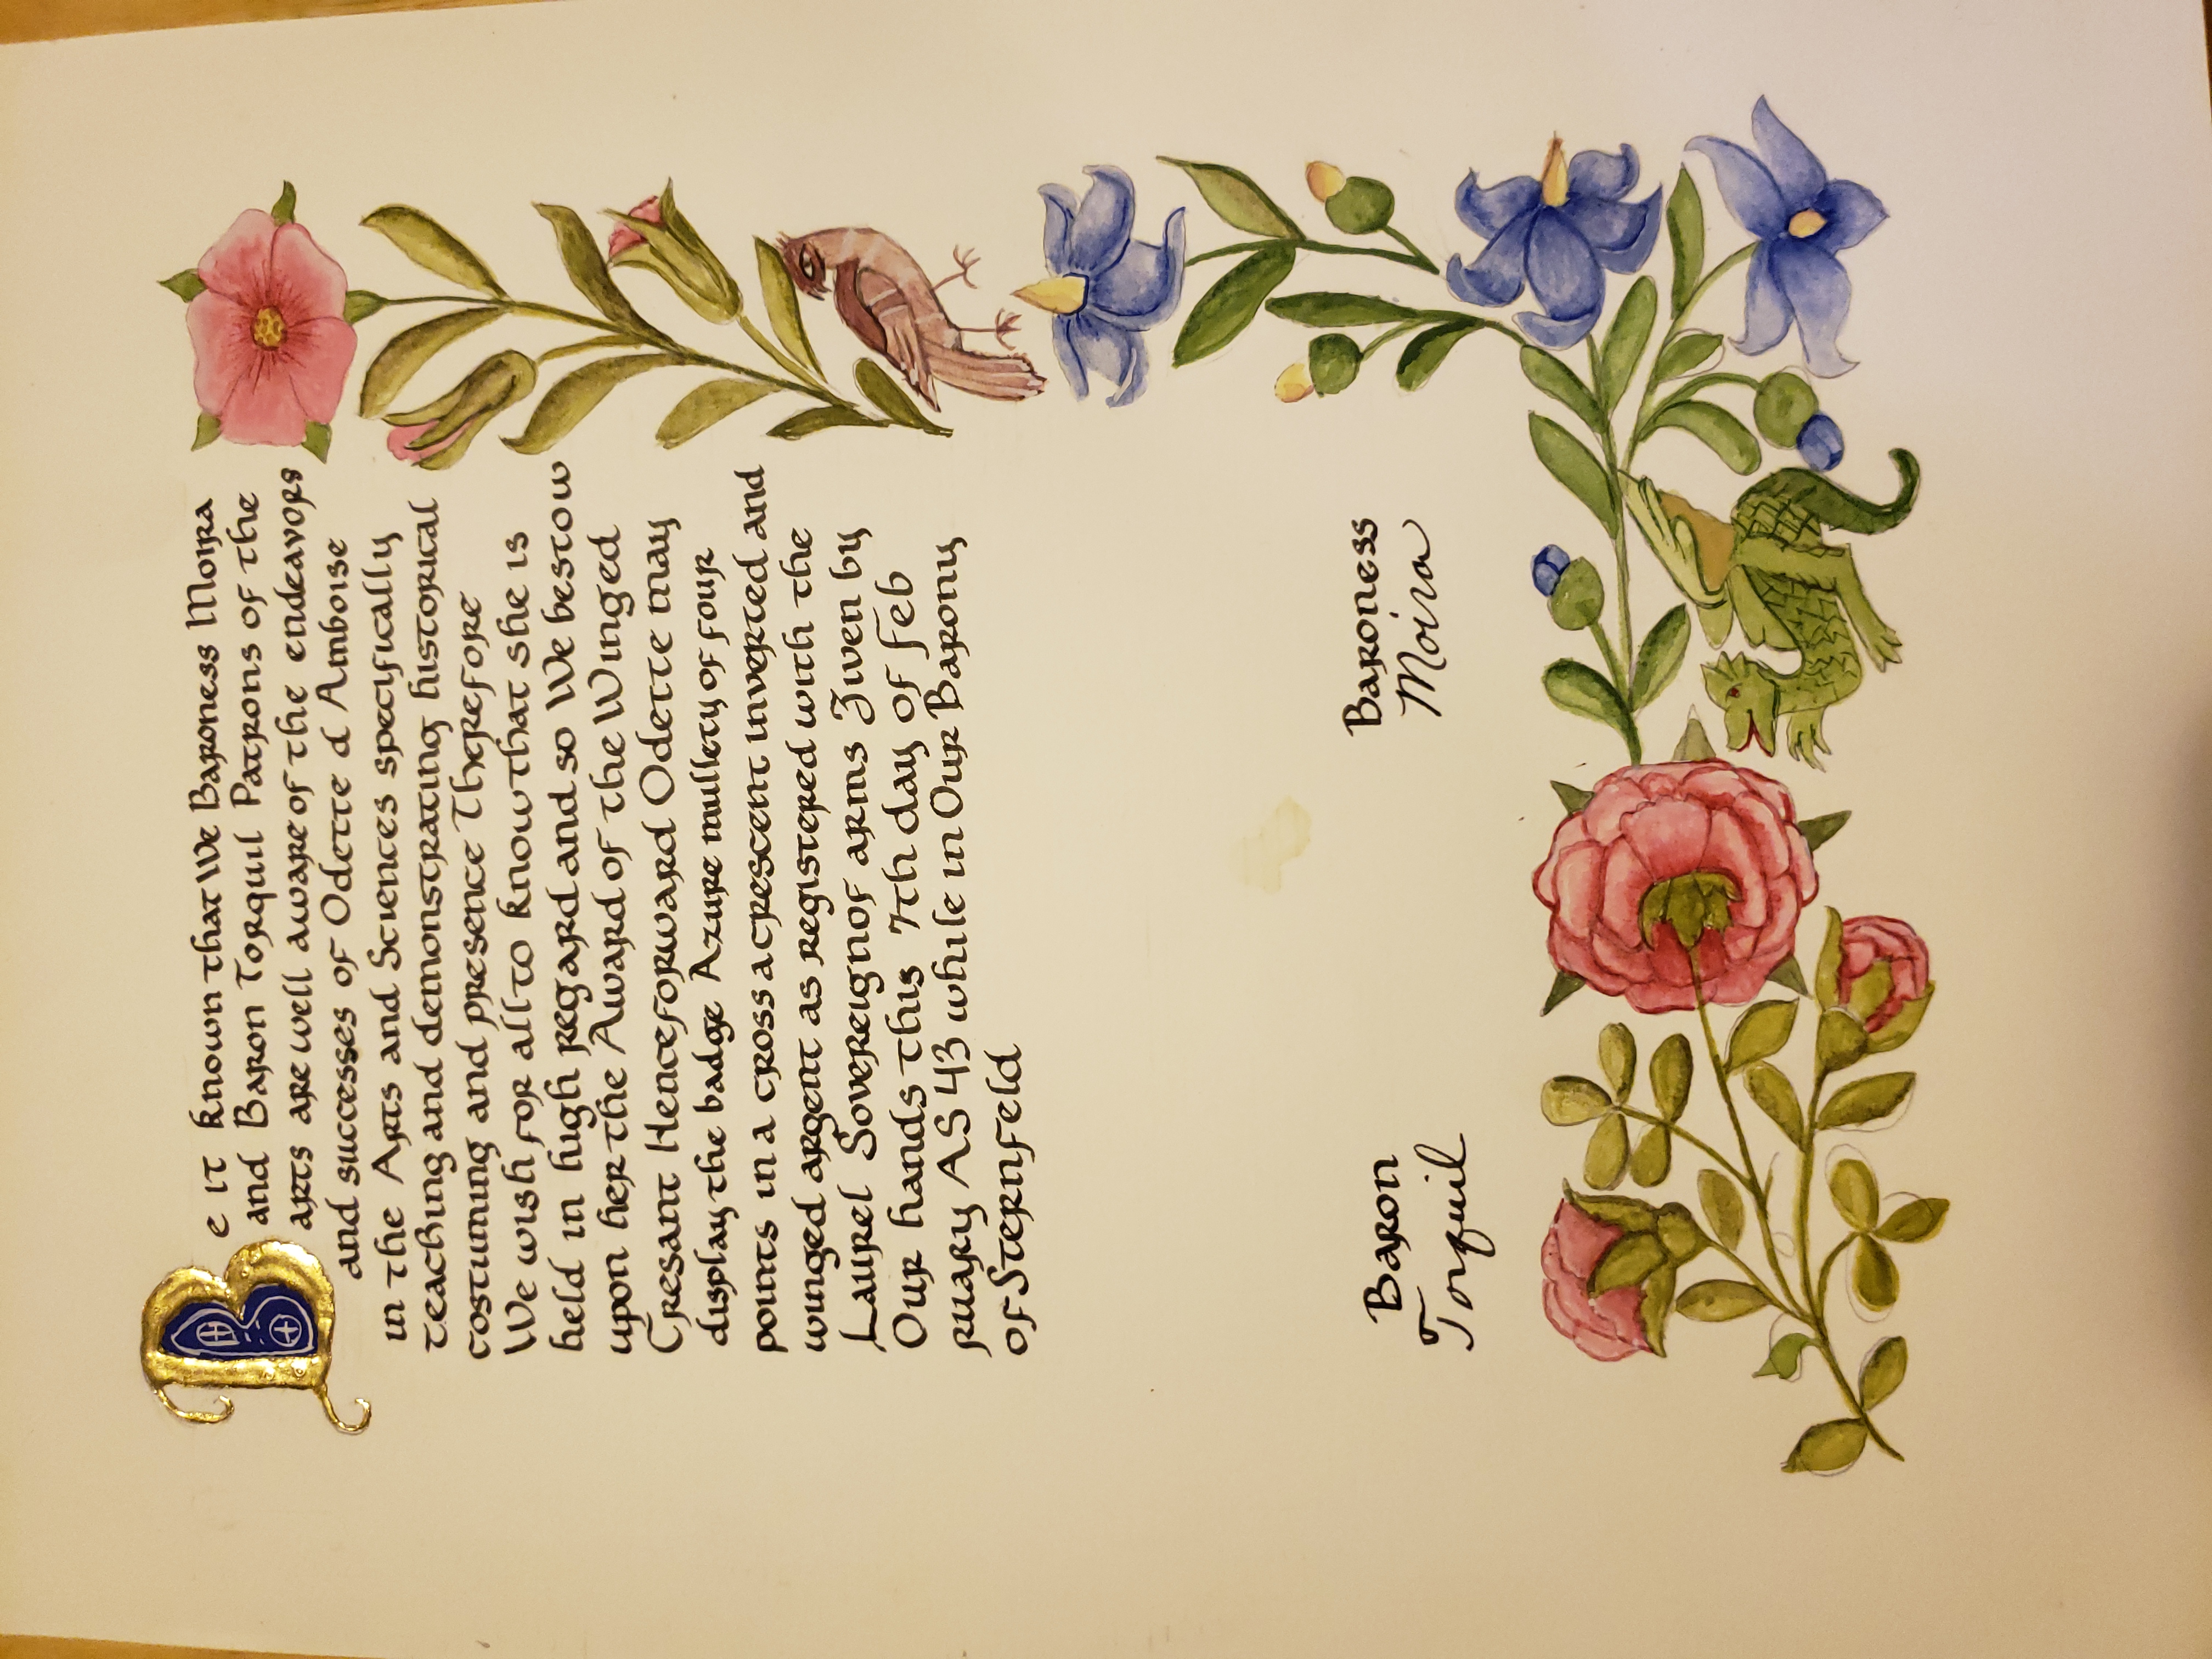 Be it known that We Baroness Moira
and Baron Torquil Patrons of the
arts are well aware of the endeavors
and successes of Odette d Amboise
in the Arts and Sciences specifically
teaching and demonstrating historical
costuming and presence Therefore
We wish for all to know that she is
held in high regard and so We bestow
upon her the Award of the Winged
Cresant Henceforward Odette may
display the badge Azure mullety of four
points in a cross a crescent inverted and
winged argent as registered with the
Laurel Sovereign of arms Given by
Our hands this 7th day of Feb
ruary AS 43 while in Our Barony
of Sternfeld
Baron Baroness
Torquil Moira